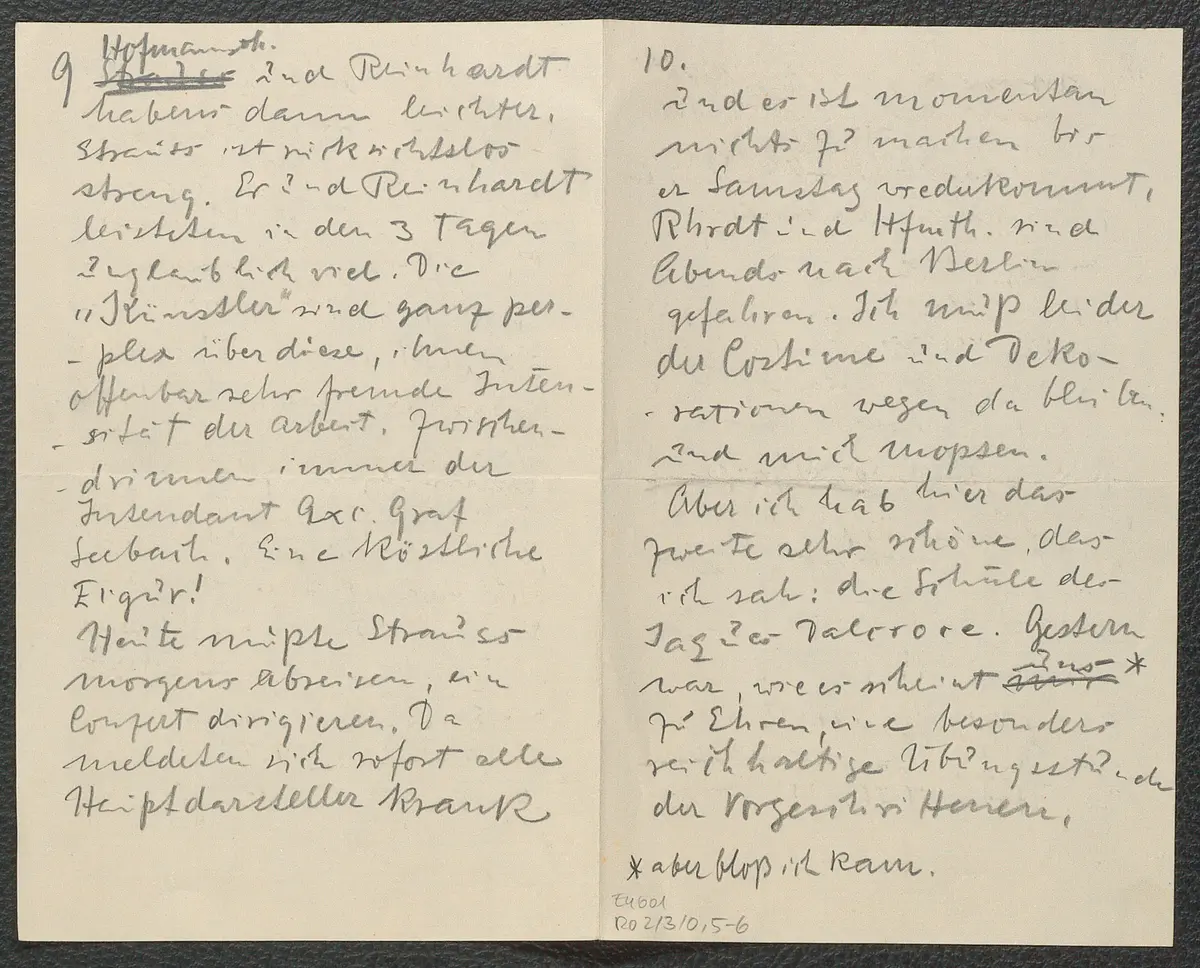 9 Hofmannsth.
Strauss und Reinhardt
habens dann leichter.
Strauss ist rücksichtslos
streng. Er und Reinhardt
leisteten in den 3 Tagen
unglaublich viel. Die
„Künstler" sind ganz per-
-plex über diese, ihnen
offenbar sehr fremde Inten-
-sität der Arbeit. Zwischen-
-drinnen immer der
Intendant Exc. Graf
Seebach. Eine köstliche
Figur!
Heute mußte Strauss
morgens abreisen, ein
Conzert dirigieren. Da
meldeten sich sofort alle
Hauptdarsteller krank
10.
und es ist momentan
nichts zu machen bis
er Samstag wiederkommt.
Rhrdt und Hfmth. sind
Abends nach Berlin
gefahren. Ich muß leider
der Costüme und Deko-
-rationen wegen da bleiben.
und mich mopsen.
Aber ich hab hier das
zweite sehr schöne, das
ich sah: die Schule des
Jaques Dalcroce. Gestern
war, wie es scheint uns *
zu Ehren, eine besonders
reichhaltige Übungsstunde
der Vorgeschrittenen.
* aber bloß ich kam.
E4601
Ro 2/3/0,5-6